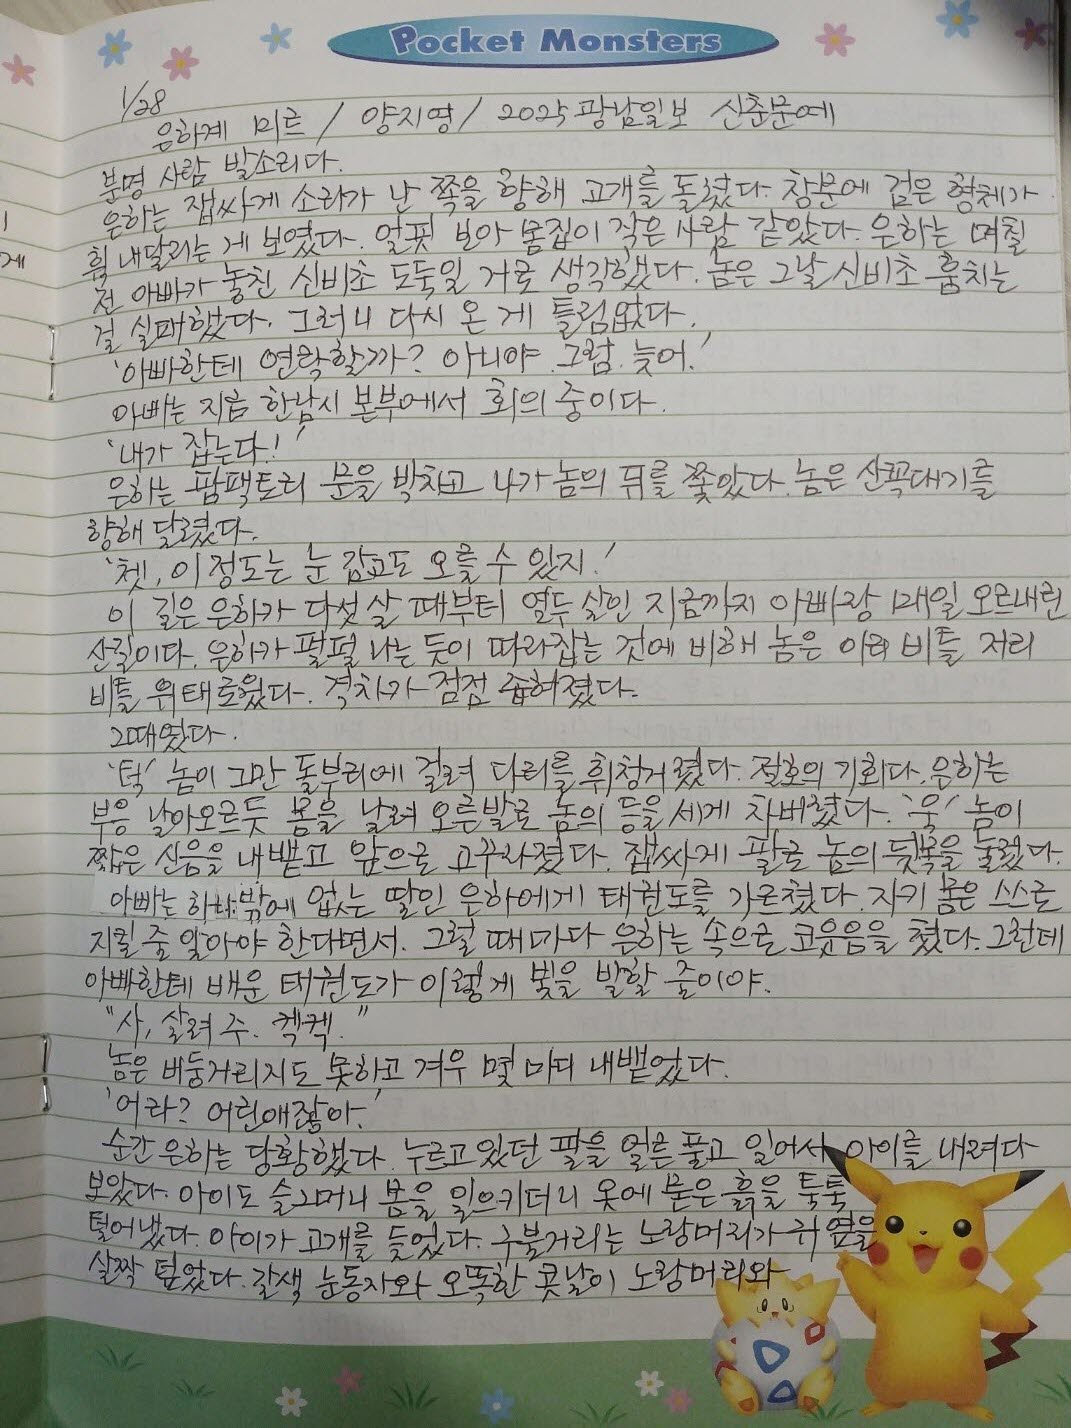 Pocket Monsters
1/28
은하계 미르 / 양지영 / 2025 광남일보 신춘문예
분명 사람 발소리다.
은하는 잽싸게 소리가 난 쪽을 향해 고개를 돌렸다. 창문에 검은 형체가
휙 내달리는 게 보였다. 얼핏 보아 몸집이 작은 사람 같았다. 은하는 며칠
전 아빠가 놓친 신비초 도둑일 거로 생각했다. 놈은 그날 신비초 훔치는
걸 실패했다. 그러니 다시 온 게 틀림없다.
'아빠한테 연락할까? 아니야. 그럼 늦어.'
아빠는 지금 한남시 본부에서 회의 중이다.
'내가 잡는다!'
은하는 팜팩토리 문을 박차고 나가 놈의 뒤를 쫓았다. 놈은 산꼭대기를
향해 달렸다.
'쳇, 이 정도는 눈 감고도 오를 수 있지!'
이 길은 은하가 다섯 살 때부터 열두 살인 지금까지 아빠랑 매일 오르내린
산길이다. 은하가 펄펄 나는 듯이 따라잡는 것에 비해 놈은 이리 비틀 저리
비틀 위태로웠다. 격차가 점점 좁혀졌다.
그때였다.
'턱' 놈이 그만 돌부리에 걸려 다리를 휘청거렸다. 절호의 기회다. 은하는
부웅 날아오르듯 몸을 날려 오른발로 놈의 등을 세게 차버렸다. '욱' 놈이
짧은 신음을 내뱉고 앞으로 고꾸라졌다. 잽싸게 팔로 놈의 뒷목을 눌렀다.
아빠는 하나밖에 없는 딸인 은하에게 태권도를 가르쳤다. 자기 몸은 스스로
지킬 줄 알아야 한다면서. 그럴 때마다 은하는 속으로 코웃음을 쳤다. 그런데
아빠한테 배운 태권도가 이렇게 빛을 발할 줄이야.
"사, 살려 주. 켁켁."
놈은 버둥거리지도 못하고 겨우 몇 마디 내뱉었다.
'어라? 어린애잖아.'
순간 은하는 당황했다. 누르고 있던 팔을 얼른 풀고 일어서 아이를 내려다
보았다. 아이도 슬그머니 몸을 일으키더니 옷에 묻은 흙을 툭툭
털어냈다. 아이가 고개를 들었다. 구불거리는 노랑머리가 귀 옆을
살짝 덮었다. 갈색 눈동자와 오똑한 콧날이 노랑머리와